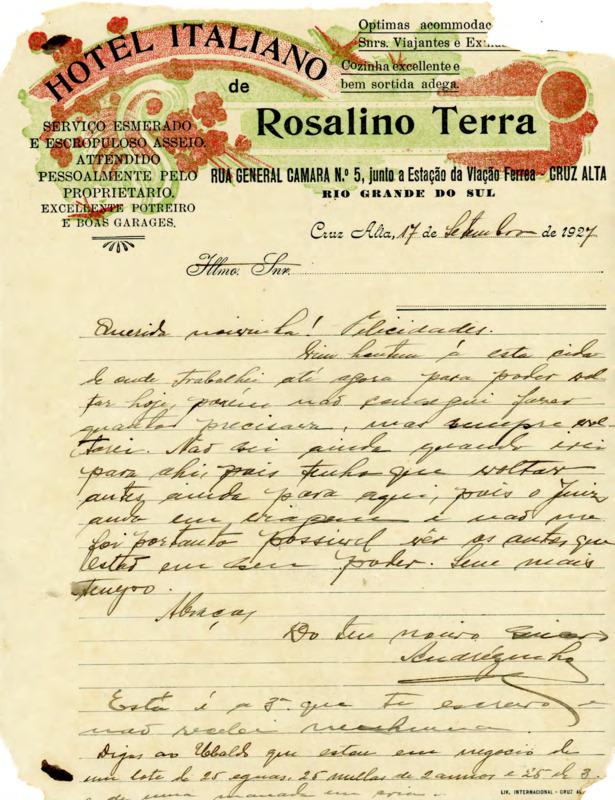 HOTEL ITALIANO
de
Rosalino Terra
Optimas acommodac
Snrs. Viajantes e
Cozinha excellente e
bem sortida adega.
SERVIÇO ESMERADO
E ESCROPULOSO ASSEIO.
ATTENDIDO
PESSOALMENTE PELO
PROPRIETARIO.
EXCELLENTE POTREIRO
E BOAS GARAGES.
RUA GENERAL CAMARA N.º 5, junto a Estação da Viação Ferrea - CRUZ ALTA
RIO GRANDE DO SUL
Cruz Alta, 17 de Setembro de 1927
Illmo. Snr.
Querida noivinha! Felicidades.
Vim hontem á esta cida
de onde trabalhei até agora para poder vol
tar hoje, porém não consegui fazer
quanto precisava, mas sempre vol
tarei. Não sei ainda quando irei
para ahi, pois tenho que voltar
antes ainda para aqui, pois o Juiz
anda em viagem e não me
foi portanto possivel vêr os autos que
estão em seu poder. Sem mais
tempo.
Abraços
Do teu noivo
Andrézinho
Está é a 3ª que te escrevo e
não recebi nenhuma
Digas ao Ubaldo que estou em negocio de
um lote de 25 eguas, 25 mullas de 2 annos e 25 de 3
e de uma manada em
LIV. INTERNACIONAL - CRUZ AL